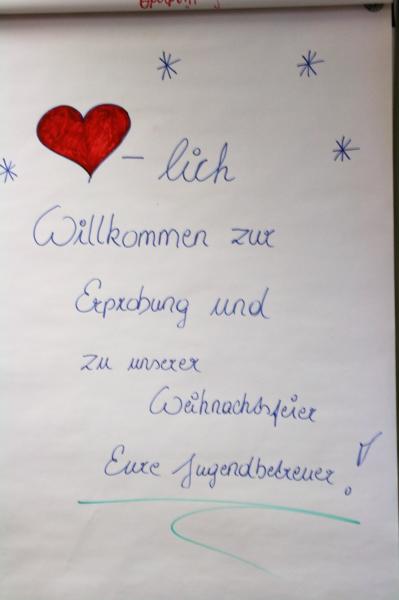 - lich
Willkommen zur
Erprobung und
zu unserer
Weihnachtsfeier
Eure Jugendbetreuer!